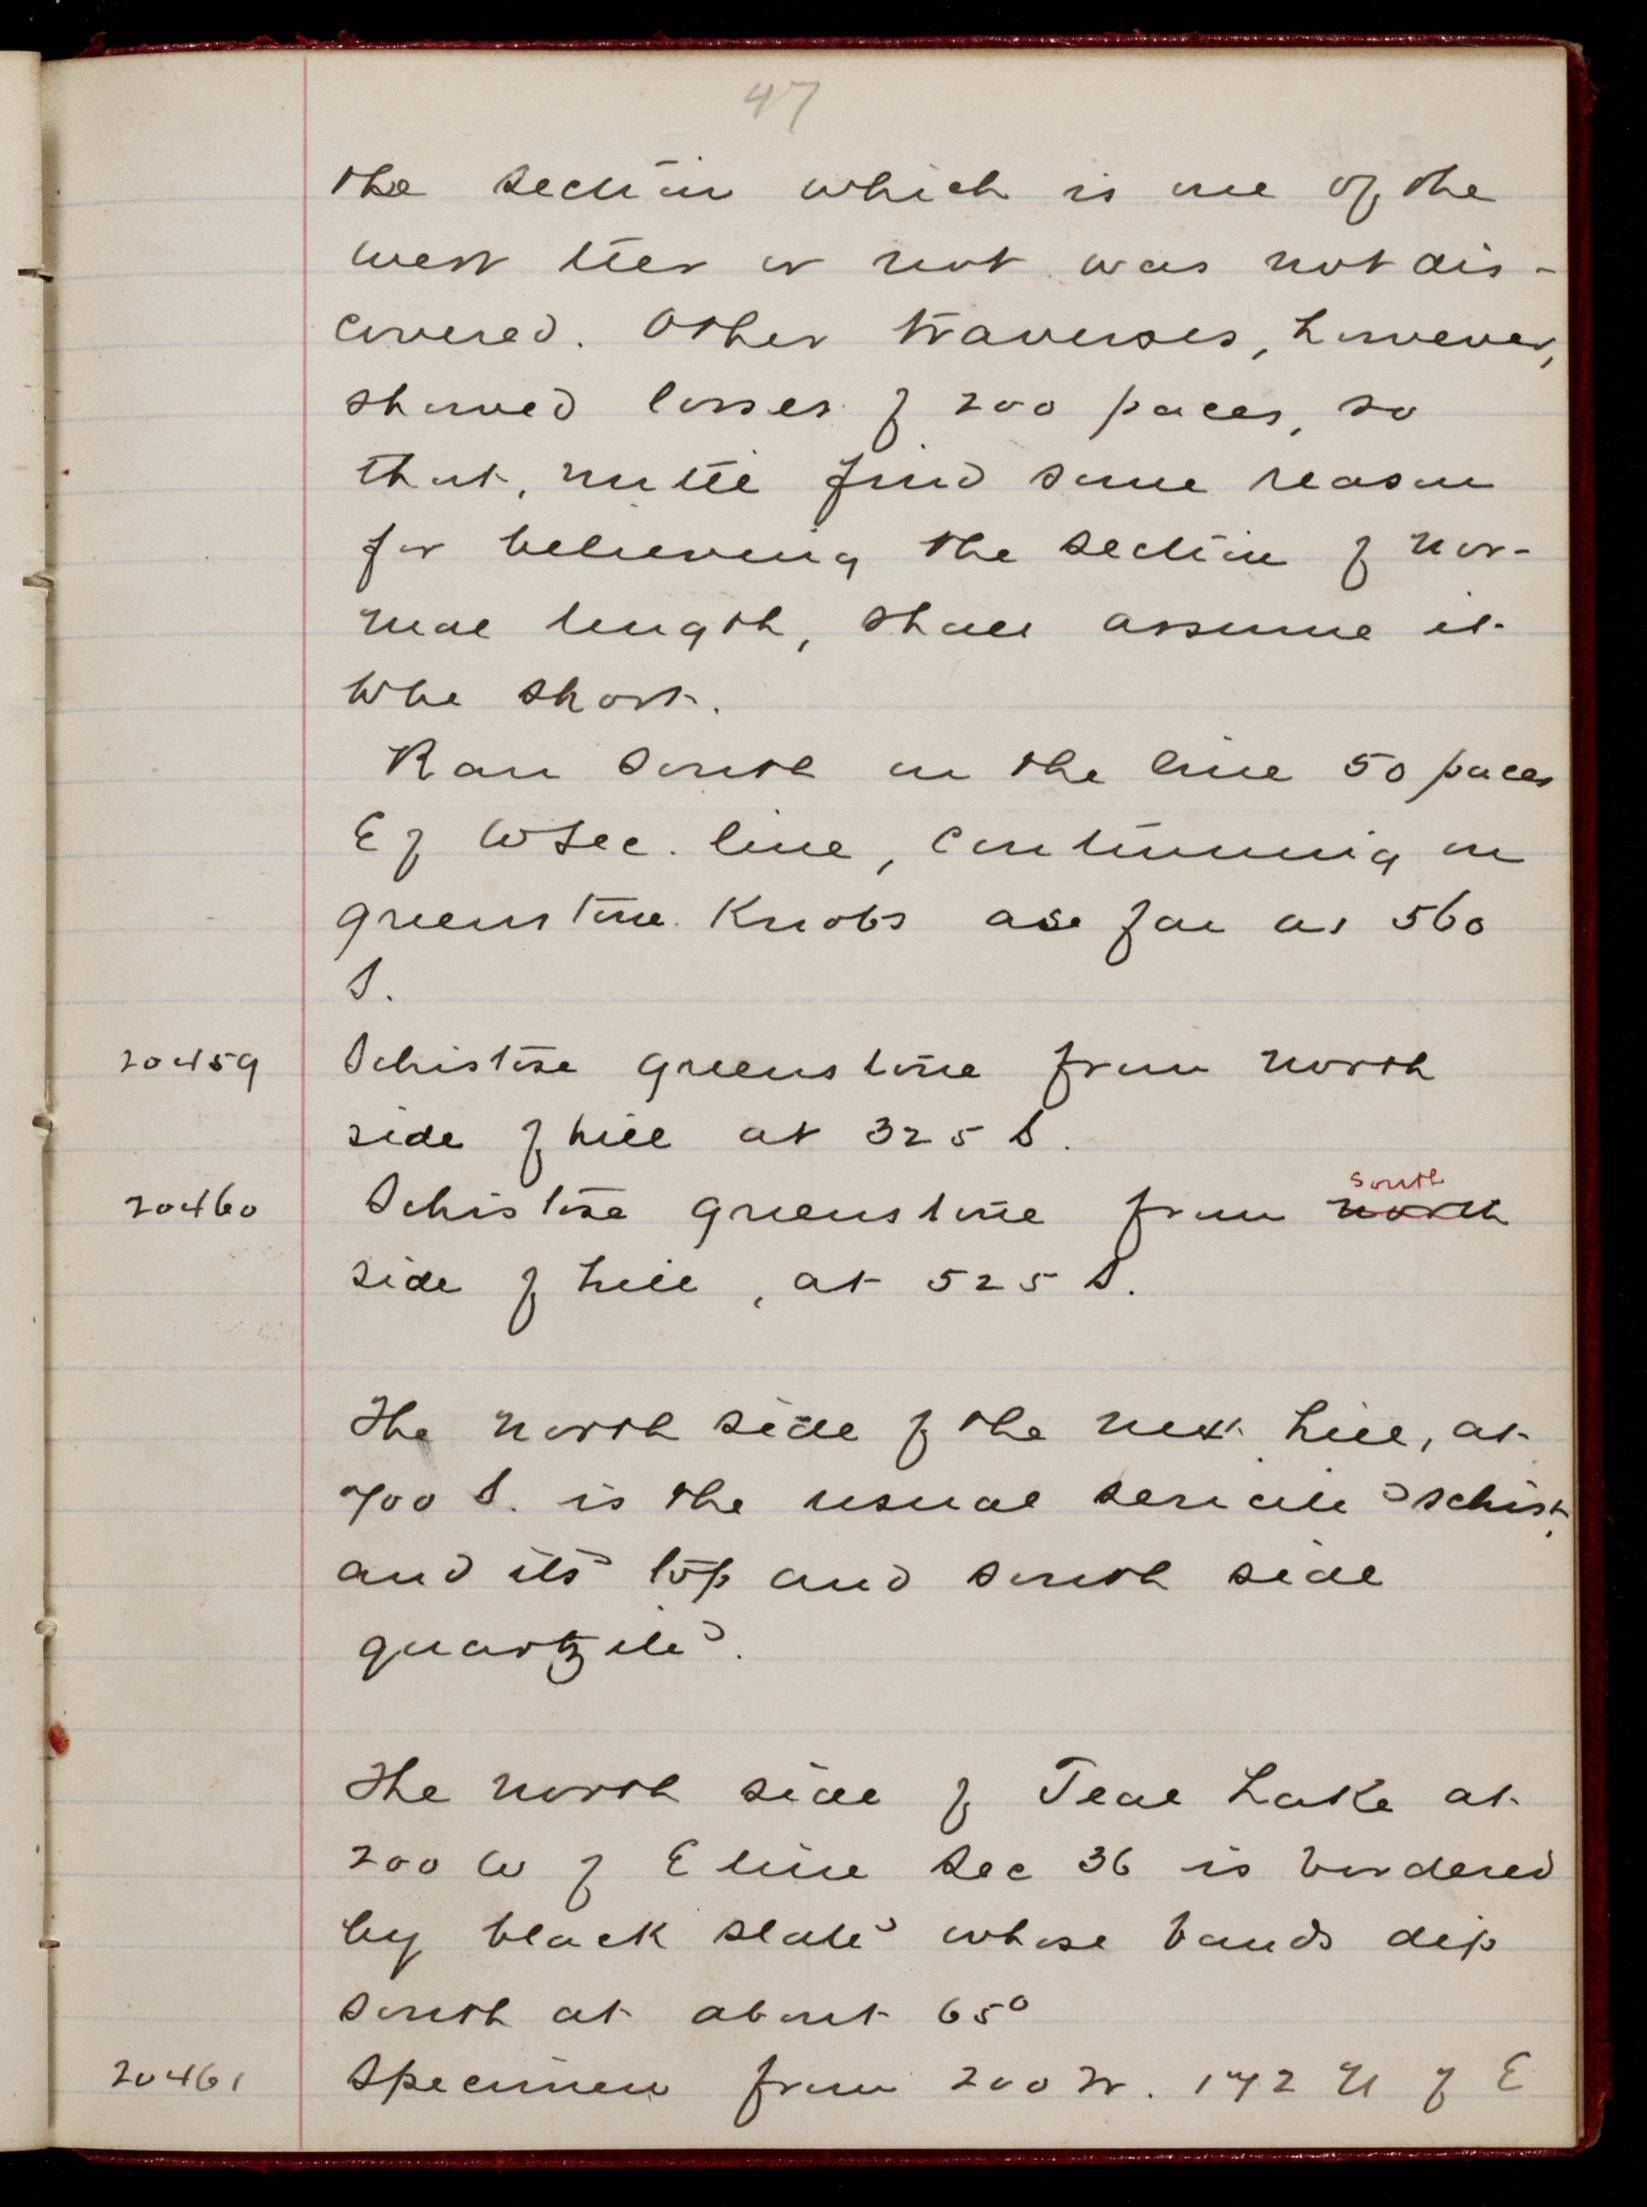 47
the section which is one of the
west tier or not was not dis-
covered. Other traverses, however,
showed losses of 200 paces, so
that, until find some reason
for believing the section of nor-
mal length, shall assume it
to be short.
Ran south on the line 50 paces
E of W Sec. line, continuing on
greenstone knobs as far as 560
S.
20459 Schistose greenstone from north
side of hill at 325 S.
south
20460 Schistose greenstone from north
side of hill, at 525 S.
The north side of the next hill, at
700 S. is the usual sericite schist,
and its top and south side
quartzite.
The north side of Teal Lake at
200 W of E line Sec 36 is bordered
by black slate whose bands dip
south at about 65°
20461 Specimen from 200 W. 142 N of E